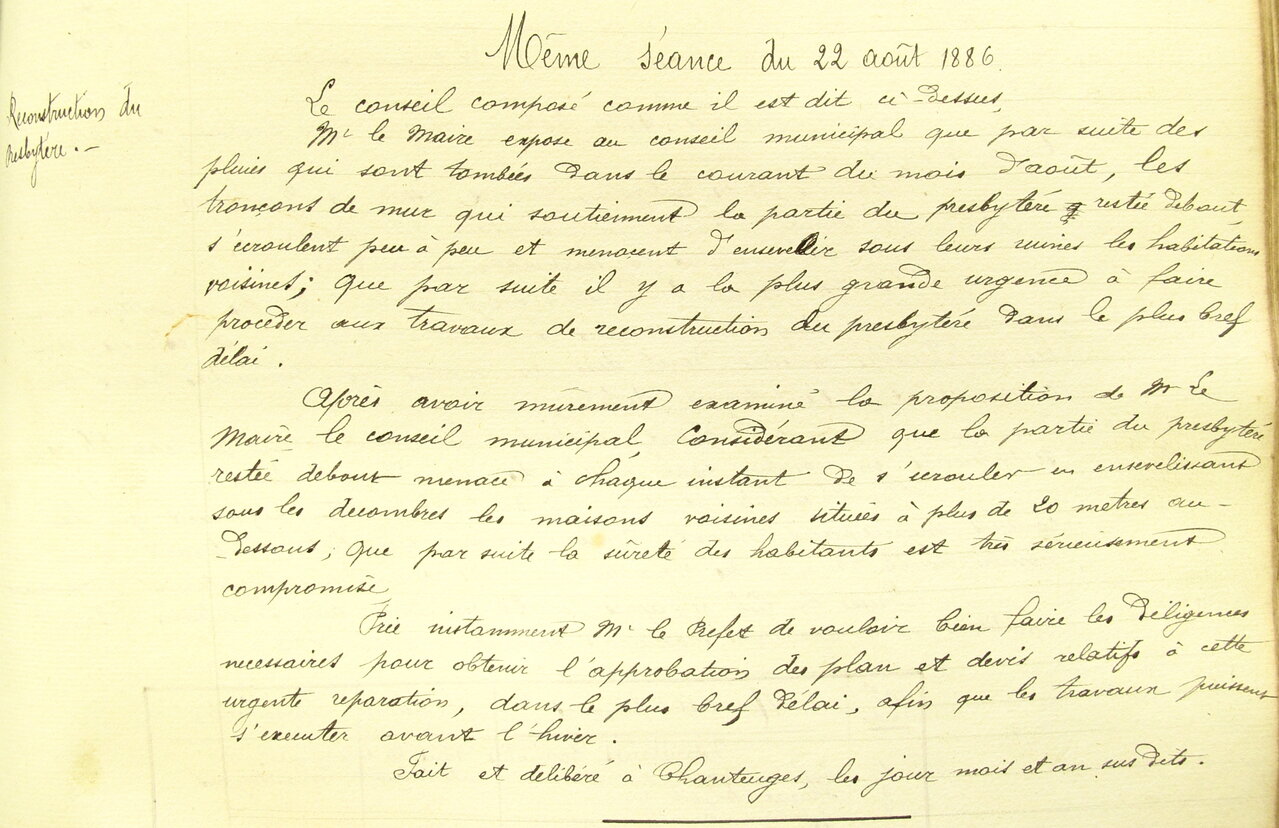 Même séance du 22 août 1886.
Reconstruction du
Presbytère. -
Le conseil composé comme il est dit ci-dessus,
Mr le Maire expose au conseil municipal que par suite des
pluies qui sont tombées dans le courant du mois d'août, les
tronçons de mur qui soutiennent la partie du presbytère restée debout,
s'écroulent peu à peu et menacent d'ensevelir sous leurs ruines les habitations
voisines; que par suite il y a la plus grande urgence à faire
procéder aux travaux de reconstruction du presbytère dans le plus bref
délai.
Après avoir mûrement examiné la proposition de Mr Le
Maire le conseil municipal, Considérant que la partie du presbytère
restée debout menace à chaque instant de s'écrouler en ensevelissant
sous les décombres les maisons voisines situées à plus de 20 metres au-
-dessous; que par suite la sûreté des habitants est très sérieusement
compromise,
Prie instamment Mr le Préfet de vouloir bien faire les diligences
necessaires pour obtenir l'approbation des plan et devis relatifs à cette
urgente reparation, dans le plus bref délai, afin que les travaux puissent
s'executer avant l'hiver.
Fait et délibéré à Chanteuges, les jour mois et an sus dits.